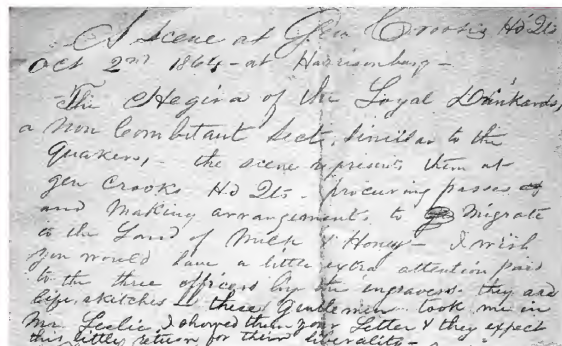 A scene at Gen Crook's Hd Qts
Oct 2nd 1864 - at Harrisonburg -
The Hegira of the Loyal Dunkards,
a Non Combitant Sect, similar to the
Quakers, - the scene represents them at
Gen Crooks Hd Qts. procuring passes
and Making arrangements to Migrate
to the Land of Milk & Honey - I wish
you would have a little extra attention paid
to the three officers by the engravers - they are
life sketches - these Gentlemen took me in
Mr. Leslie, I showed them your Letter & they expect
this little return for their liberality -